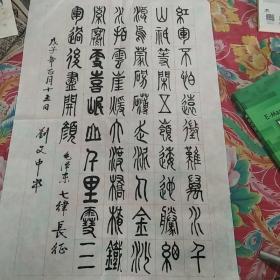 紅軍不怕遠征難萬水千
山祇等閑五嶺逶迤騰細
浪烏蒙磅礴走泥丸金沙
水拍雲崖暖大渡橋橫鐵
索寒更喜岷山千里雪三
軍過後盡開顏
毛澤東七律長征
戊子年月十五日
劉文申
E-Ma